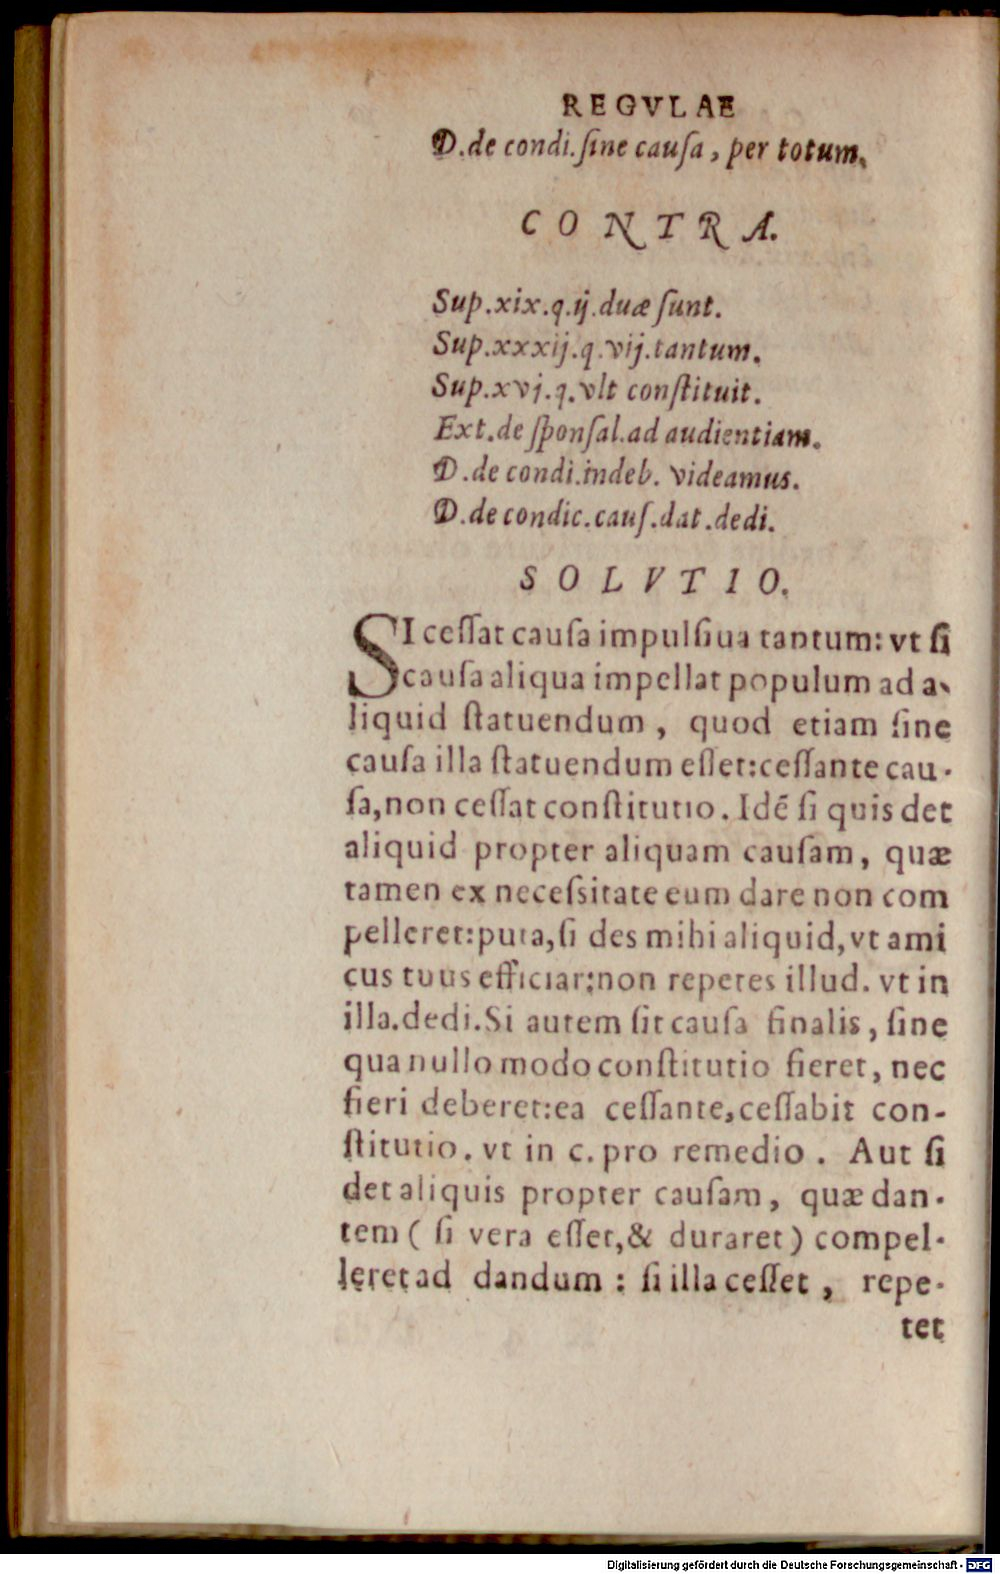 REGVLAE
D.de condi.ſine cauſa, per totum.
CONTRA.
Sup.xix.q.ij.duæ ſunt.
Sup.xxxij.q.vij.tantum.
Sup.xvj.q.vlt conſtituit.
Ext.de ſponſal.ad audientiam.
D.de condi.indeb. videamus.
D.de condic.cauſ.dat.dedi.
SOLVTIO.
SI ceſſat cauſa impulſiua tantum: vt ſi
cauſa aliqua impellat populum ad a-
liquid ſtatuendum, quod etiam ſine
cauſa illa ſtatuendum eſſet:ceſſante cau-
ſa,non ceſſat conſtitutio. Idẽ ſi quis det
aliquid propter aliquam cauſam, quæ
tamen ex neceſsitate eum dare non com
pelleret:puta,ſi des mihi aliquid,vt ami
cus tuus efficiar:non repetes illud. vt in
illa.dedi.Si autem ſit cauſa finalis, ſine
qua nullo modo conſtitutio fieret, nec
fieri deberet:ea ceſſante,ceſſabit con-
ſtitutio. vt in c. pro remedio. Aut ſi
det aliquis propter cauſam, quæ dan-
tem ( ſi vera eſſet,& duraret) compel-
leret ad dandum : ſi illa ceſſet, repe-
tet
Digitalisierung gefördert durch die Deutsche Forschungsgemeinschaft - DFG